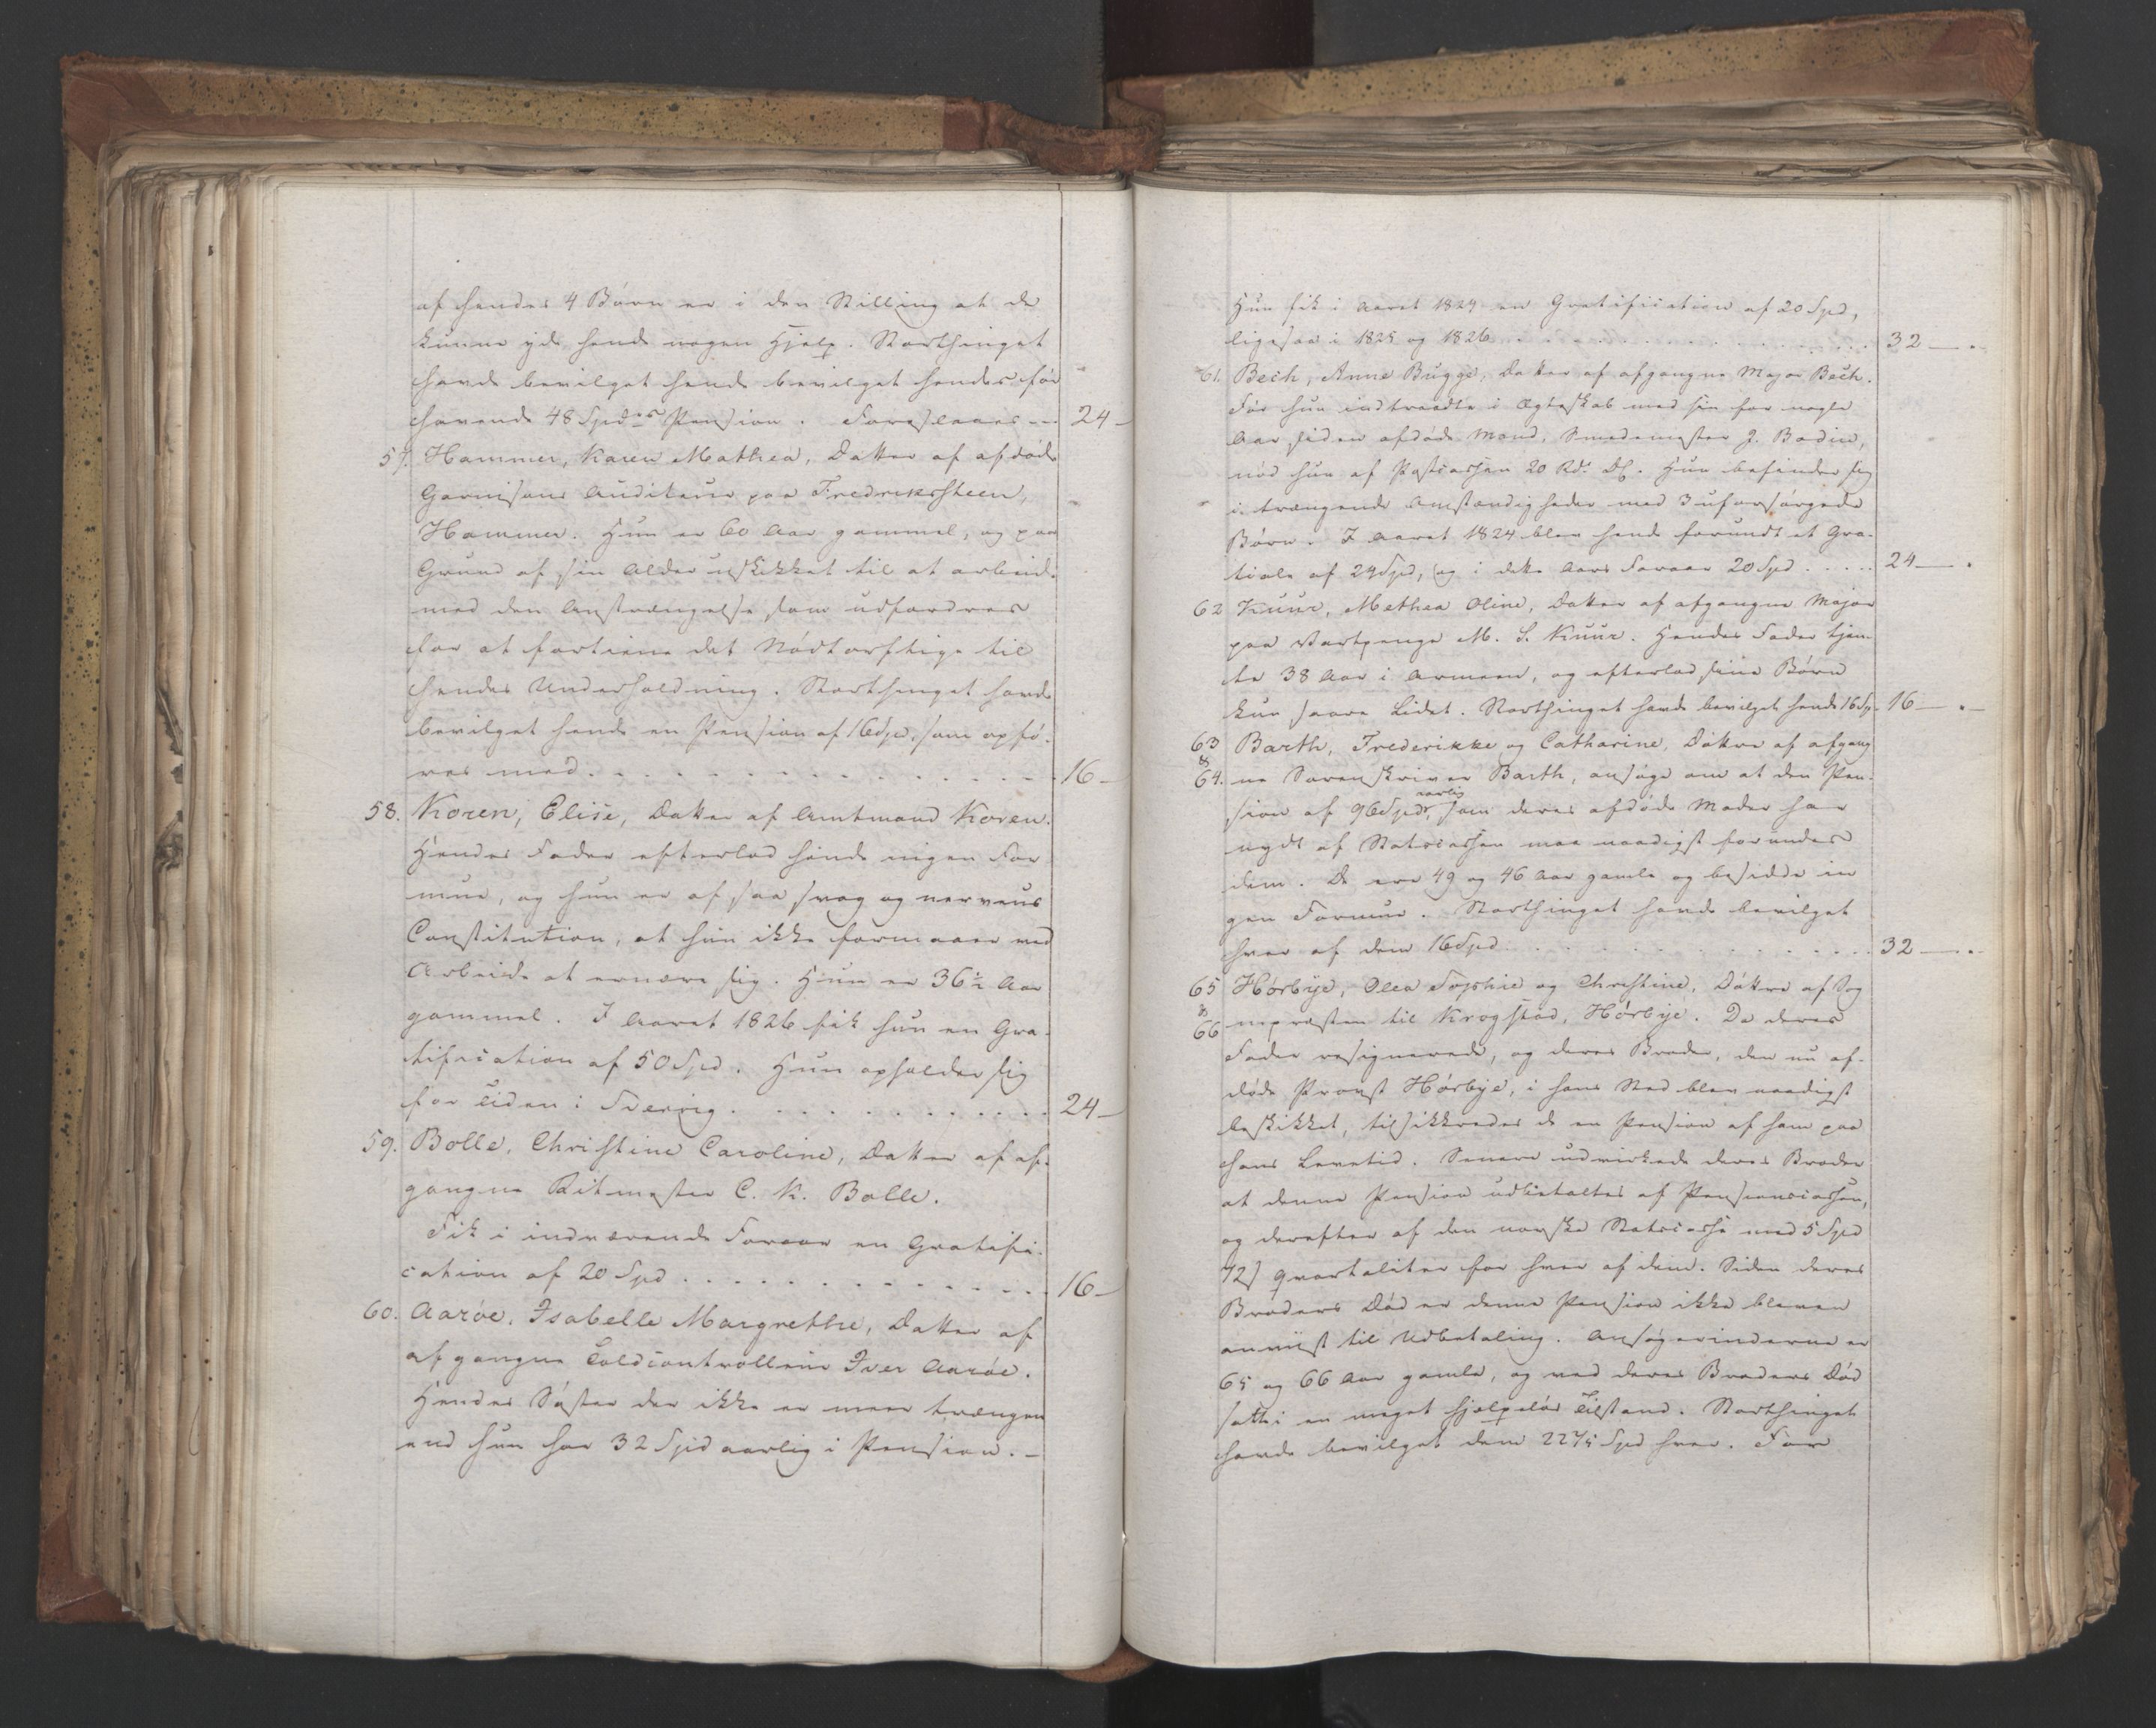 af hendes 4 Børn er i den Stilling at de
kunne yde hende nogen Hjelp. Storthinget
havde bevilget hende bevilget hendes før
havende 48 Spdrs Pension. Foreslaaes -- 24 -
57. Hammer, Karen Mathea, Datter af afdøde
Garnisons Auditeur paa Fredrikssteen,
Hammer. Hun er 60 Aar gammel, og paa
Grund af sin Alder uskikket til at arbeide
med den Anstrængelse som udfordres
for at fortiene det Nødtørftige til
hendes Underholdning. Storthinget havde
bevilget hende en Pension af 16 Spd, som opfø-
res med. . . . . . . . . . . . . . 16 -
58. Koren, Elise, Datter af Amtmand Koren.
Hendes Fader efterlod hende ingen For
mue, og hun er af saa svag og nerveus
Constitution, at hun ikke formaaer ved
Arbeide at ernære sig. Hun er 36½ Aar
gammel. I Aaret 1826 fik hun en Gra-
tification af 50 Spd. Hun opholder sig
for Tiden i Sverrig. . . . . . . . . . . 24 -
59. Bolle, Christine Caroline, Datter af af-
gangne Ritmester C. K. Bolle.
Fik i indværende Foraar en Gratifi-
cation af 20 Spd . . . . . . . . . . . . 16 -
60. Aarøe, Isabelle Margrethe, Datter af
afgangne Toldcontrolleur Iver Aarøe.
Hendes Søster der ikke er meer trængen
end hun har 32 Spd aarlig i Pension. -
Hun fik i Aaret 1824 en Gratification af 20 Spd,
ligesaa i 1825 og 1826 . . . . . . . . . . . . 32 -
61. Bech, Anne Bugge, Datter af afgangne Major Bech.
Før hun indtraadte i Ægteskab med sin for nogle
Aar siden afdøde Mand, Smedemester J. Bodin,
nød hun af Postcassen 20 Rd. DC. Hun befinder sig
i trængende Omstændigheder med 3 uforsørgede
Børn. I Aaret 1824 blev hende forundt et Gra-
tiale af 24 Spd, og i dette Aars Foraar 20 Spd . . . . . 24 -
62 Kuur, Mathea Oline, Datter af afgangne Major
paa Vartpenge M. S. Kuur. Hendes Fader tjen-
te 38 Aar i Armeen, og efterlod sine Børn
kun saare Lidet. Storthinget havde bevilget hende 16 Sp. 16 -
63 Barth, Frederikke og Catharine, Døttre af afgang
&
64. ne Sorenskriver Barth, ansøge om at den Pen-
sion af 96 Spdr aarlig, som deres afdøde Moder har
nydt af Statscassen maa naadigst forundes
dem. De ere 49 og 46 Aar gamle og besidde in
gen Formue. Storthinget havde bevilget
hver af dem 16 Spd . . . . . . . . . . . . 32 -
65 Hørbye, Olea Sophie og Christine, Døttre af Sog
&
66 nepræsten til Krogstad, Hørbye. Da deres
Fader resignerede, og deres Broder, den nu af-
døde Provst Hørbye, i hans Sted blev naadigst
beskikket, tilsikkredes de en Pension af ham paa
hans Levetid. Senere udvirkede deres Broder
at denne Pension udbetaltes af Pensionscassen,
og derefter af den norske Statscasse med 5 Spd
72 s qvartaliter for hver af dem. Siden deres
Broders Død er denne Pension ikke bleven
anviist til Udbetaling. Ansøgerinderne er
65 og 66 Aar gamle, og ved deres Broders Død
satte i en meget hjelpeløs Tilstand. Storthinget
havde bevilget dem 22 4/5 Spd hver. For